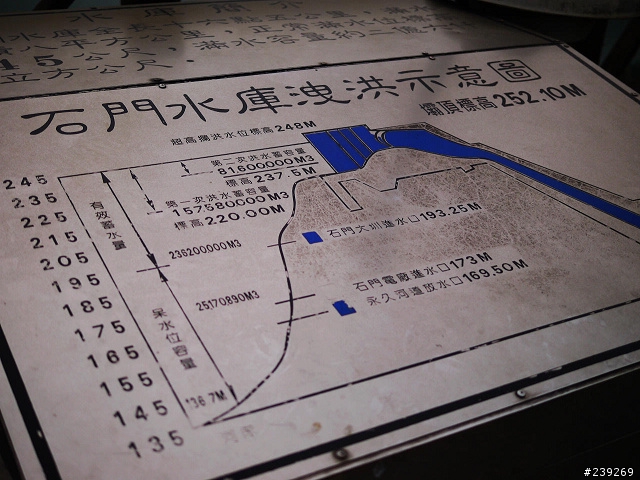 水庫簡介
石門水庫全長十六點五公里,滿水
八平方公里,正常滿水位標高
45公尺,滿水容量約二億
立方公尺。
石門水庫洩洪示意圖
壩頂標高252.10M
超高攔洪水位標高248M
第二次洪水蓄容量
81600000M3
標高237.5M
第一次洪水蓄容量
157580000M3
標高220.00M
236200000M3
25170890M3
136.7M
有效蓄水量
呆水位容量
石門大圳進水口193.25M
石門電廠進水口173M
永久河道放水口169.50M
河床
245
235
225
215
205
195
185
175
165
155
145
135
#239269